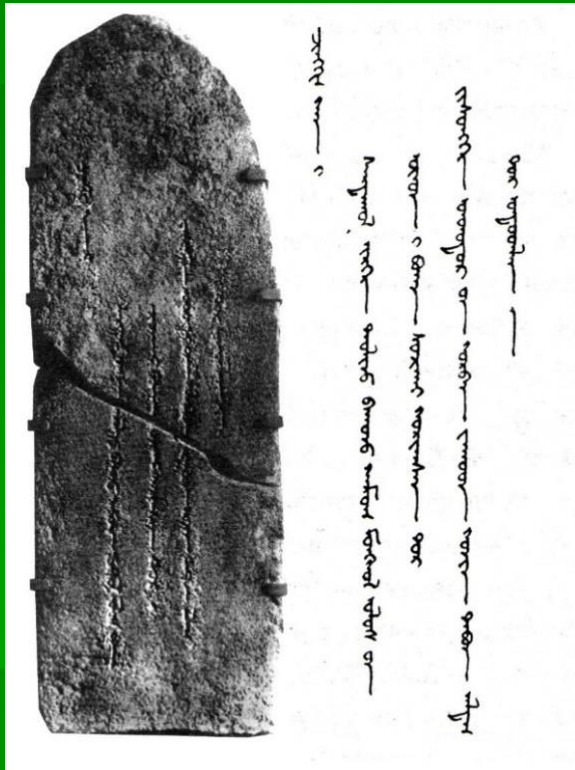 ᠴᠢᠩᠭᠢᠰ ᠬᠠᠨ ᠢ
ᠰᠠᠷᠲᠠᠭᠤᠯ ᠢᠷᠭᠡ ᠳᠠᠭᠤᠯᠢᠵᠤ ᠪᠠᠭᠤᠵᠤ ᠬᠠᠮᠤᠭ ᠮᠣᠩᠭᠣᠯ ᠤᠯᠤᠰ ᠤᠨ
ᠨᠣᠶᠠᠳ ᠢ ᠪᠤᠬᠠ ᠬᠤᠷᠢᠭᠰᠠᠨ ᠳᠤᠷ
ᠶᠢᠰᠦᠩᠭᠡ ᠣᠨᠲᠤᠳᠤᠷ ᠤᠨ ᠭᠤᠷᠪᠠᠨ ᠵᠠᠭᠤᠳ ᠭᠤᠴᠢᠨ ᠲᠠᠪᠤᠨ ᠠᠯᠳᠠᠰ
ᠲᠤᠷ ᠣᠨᠲᠤᠳᠤᠯᠠᠭᠠ